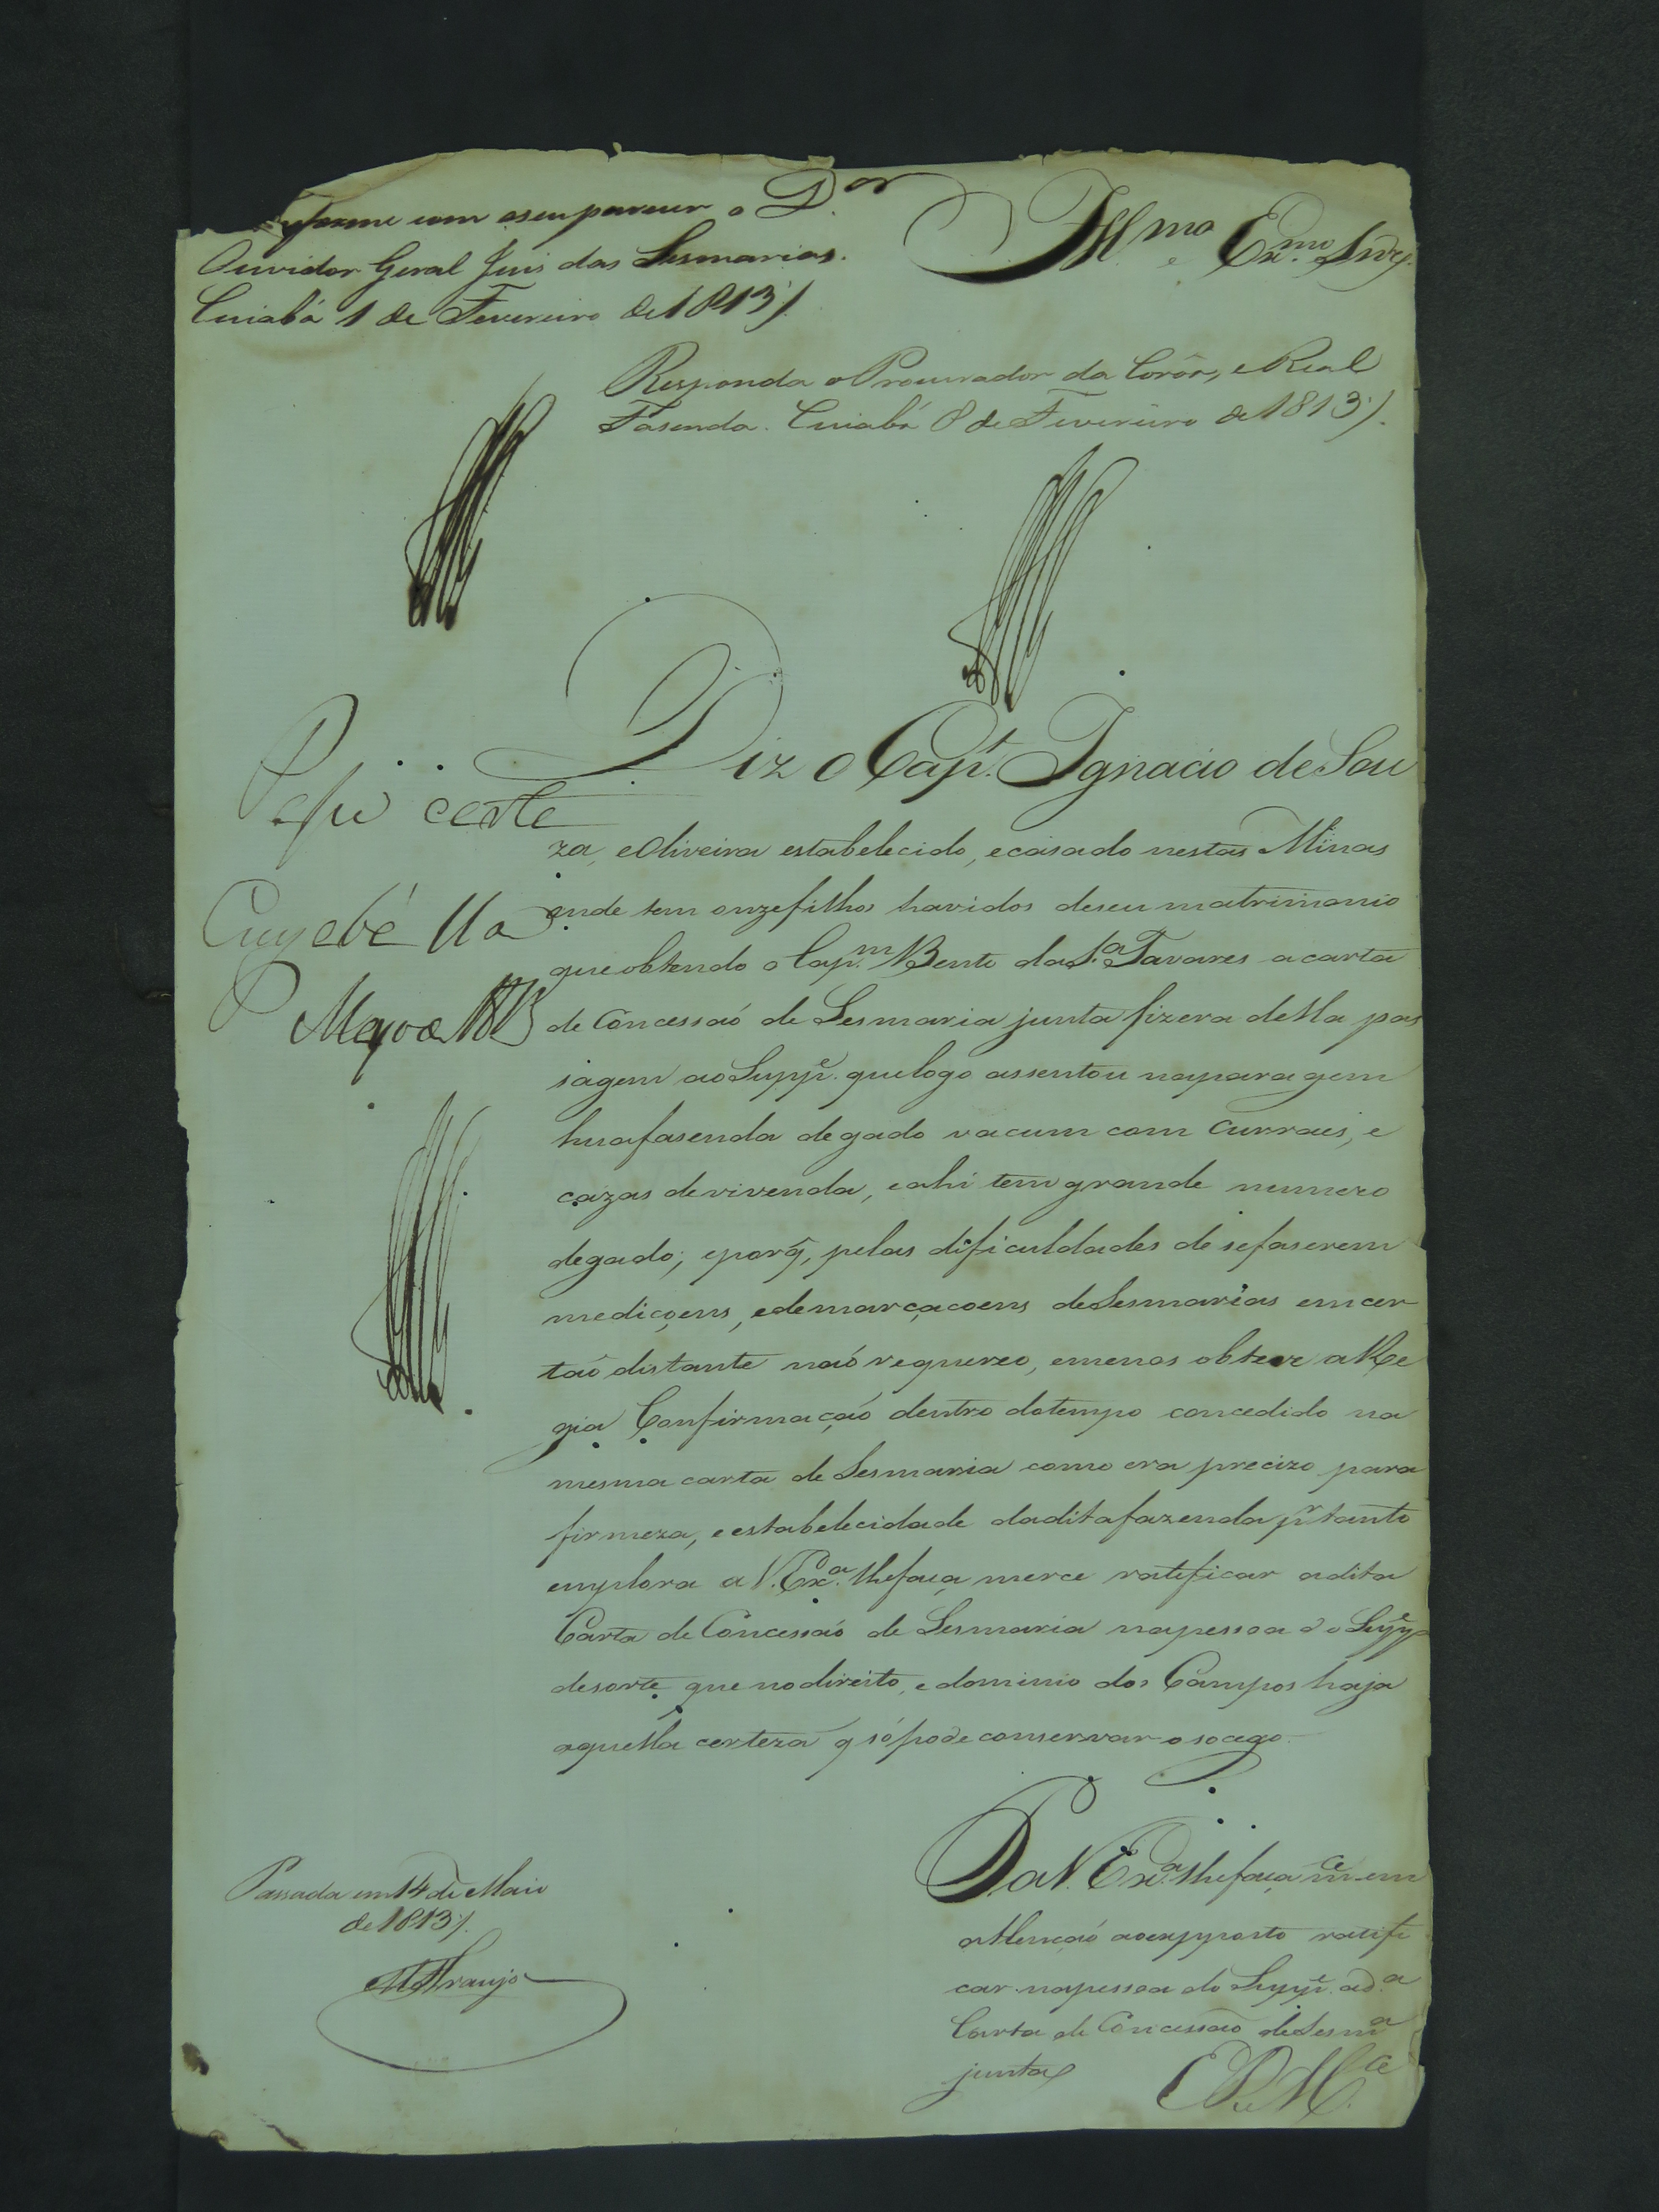 Informe com oseuparecer o D.or
Ouvidor Geral Juis das Sesmarias.
Cuiabá 1 de Fevereiro de 1813
Ill.mo e Ex.mo Snr.
Responda o Procurador da Corôa, e Real
Fasenda. Cuiabá 8 de Fevereiro de 1813
Diz o Cap.t Ignacio de Sou
za, eOliveira estabelecido, ecasado nestas Minas
onde tem onzefilhos havidos deseu matrimonio
queobtendo o Cap.m Bento da S.a Tavares acarta
de Concessaó de Sesmaria junta fizera della pas
sagem aoSupp.e quelogo assentou naparagem
huafasenda degado vacum com Currais, e
cazas devivenda, eahi tem grande numero
degado; eporq̃, pelas dificuldades de sefaserem
mediçoens, edemarcaçoens deSesmarias emcer
taõ distante naó requereo, emenos obteve aRe
gia Confirmaçaó dentro dotempo concedido na
mesma carta de Sesmaria como era precizo para
firmeza, eestabelecidade daditafazenda p.r tanto
emplora a V. Ex.a lhefaça merce ratificar adita
Carta de Concessaó de Sesmaria napessoa do Supp.e
desorte que nodireito, edominio dos Campos haja
aquella certeza q̃ sópode conservar o socego
Passe carta
Cuyabá 11 de
Mayo de 1813
P. a V. Ex.a lhefaça m.ce em
attençaó aoexpposto ratifi
car napessoa do Supp.e ad.a
Carta de Concessaõ deSesm.a
junta
E R M.ce
Passada em 14 de Maio
de 1813
Araujo